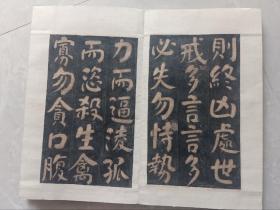 則終凶處世
戒多言言多
必失勿恃勢
力而逼淩孤
而恣殺生禽
寡勿貪口腹